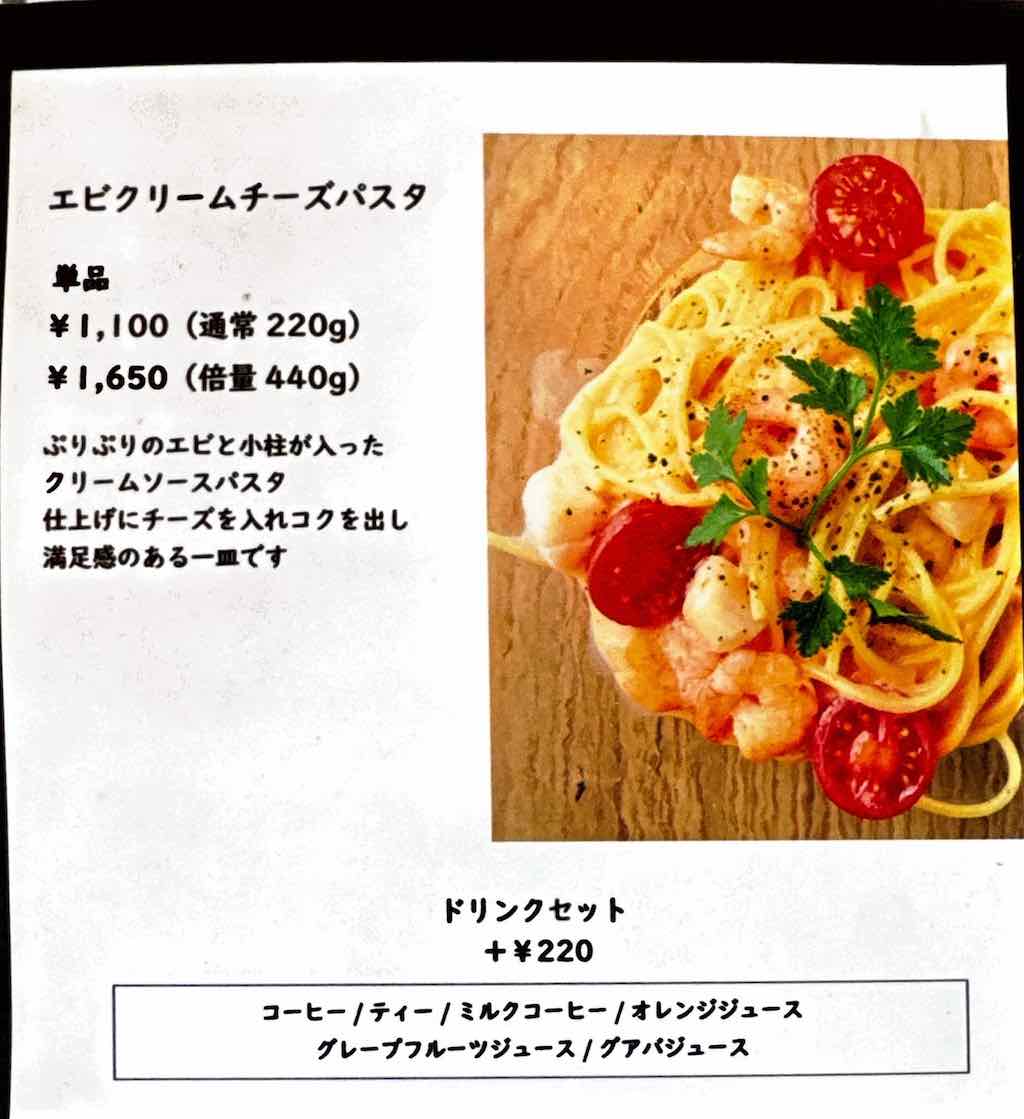 エビクリームチーズパスタ
単品
¥1,100（通常220g）
¥1,650（倍量440g）
ぷりぷりのエビと小柱が入った
クリームソースパスタ
仕上げにチーズを入れコクを出し
満足感のある一皿です
ドリンクセット
＋¥220
コーヒー / ティー / ミルクコーヒー / オレンジジュース
グレープフルーツジュース / グアバジュース